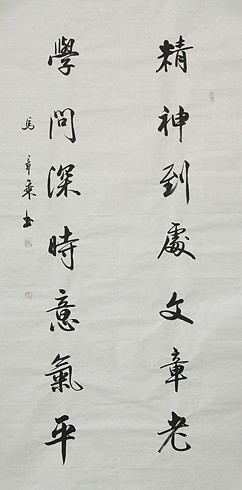 精神到處文章老
學問深時意氣平
馬章乘书